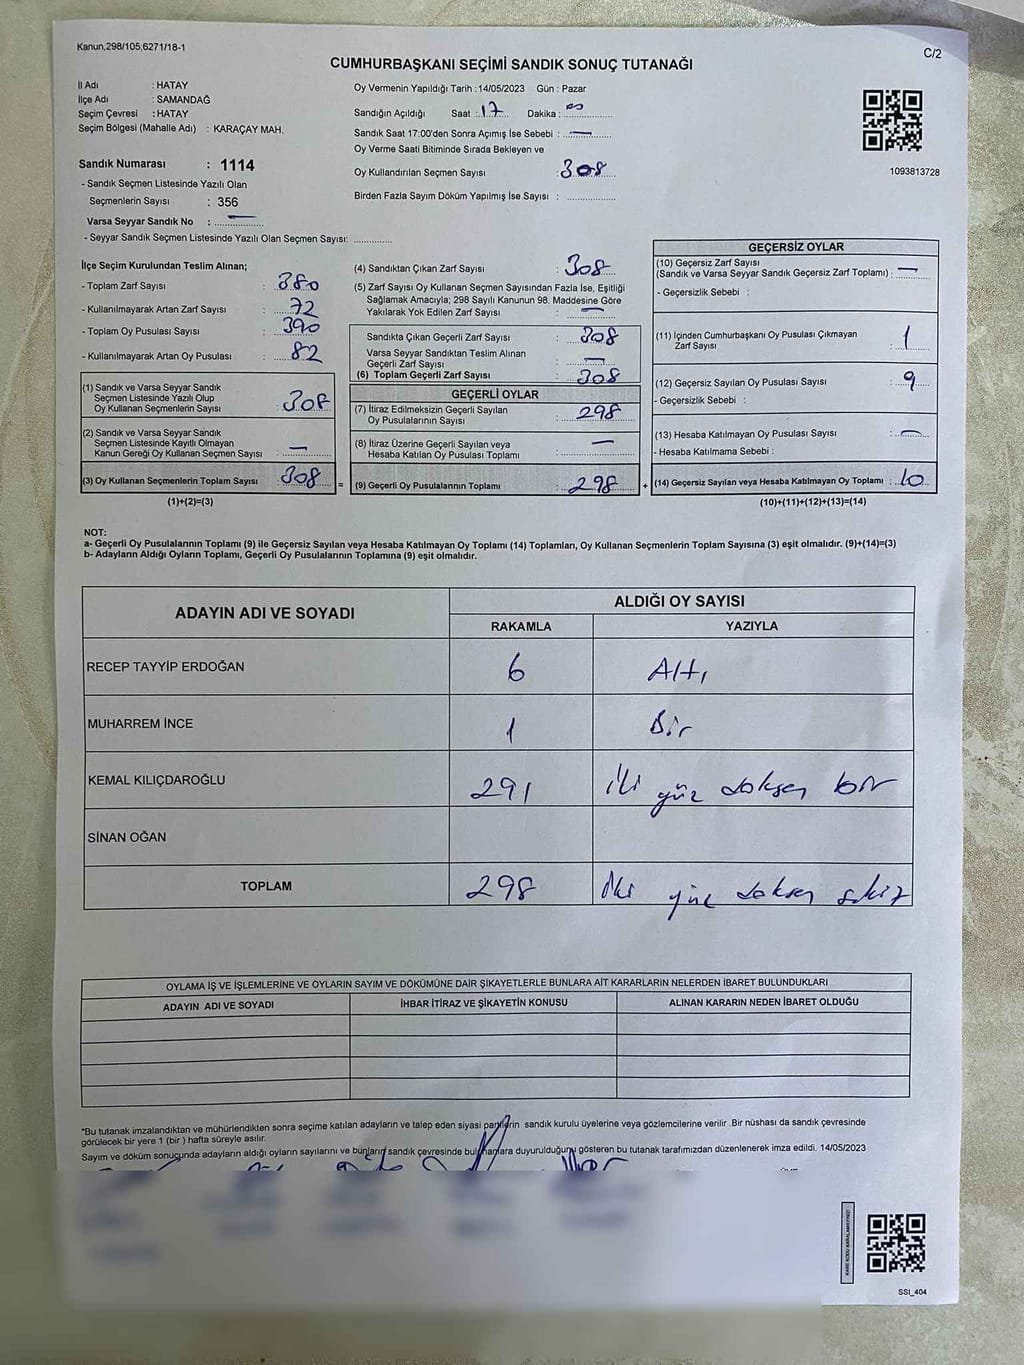 Kanun,298/105,6271/18-1
C/2
CUMHURBAŞKANI SEÇİMİ SANDIK SONUÇ TUTANAĞI
İl Adı : HATAY
İlçe Adı : SAMANDAĞ
Seçim Çevresi : HATAY
Seçim Bölgesi (Mahalle Adı) : KARAÇAY MAH.
Sandık Numarası : 1114
- Sandık Seçmen Listesinde Yazılı Olan
Seçmenlerin Sayısı : 356
Varsa Seyyar Sandık No : —
- Seyyar Sandık Seçmen Listesinde Yazılı Olan Seçmen Sayısı: ............
Oy Vermenin Yapıldığı Tarih :14/05/2023 Gün : Pazar
Sandığın Açıldığı Saat : 17 Dakika :
Sandık Saat 17:00'den Sonra Açımış İse Sebebi : —
Oy Verme Saati Bitiminde Sırada Bekleyen ve
Oy Kullandırılan Seçmen Sayısı : 308
Birden Fazla Sayım Döküm Yapılmış İse Sayısı : ............
1093813728
İlçe Seçim Kurulundan Teslim Alınan;
- Toplam Zarf Sayısı : 380
- Kullanılmayarak Artan Zarf Sayısı : 72
- Toplam Oy Pusulası Sayısı : 390
- Kullanılmayarak Artan Oy Pusulası : 82
(1) Sandık ve Varsa Seyyar Sandık
Seçmen Listesinde Yazılı Olup
Oy Kullanan Seçmenlerin Sayısı : 308
(2) Sandık ve Varsa Seyyar Sandık
Seçmen Listesinde Kayıtlı Olmayan
Kanun Gereği Oy Kullanan Seçmen Sayısı : —
(3) Oy Kullanan Seçmenlerin Toplam Sayısı : 308
(1)+(2)=(3)
(4) Sandıktan Çıkan Zarf Sayısı : 308
(5) Zarf Sayısı Oy Kullanan Seçmen Sayısından Fazla İse, Eşitliği
Sağlamak Amacıyla; 298 Sayılı Kanunun 98. Maddesine Göre
Yakılarak Yok Edilen Zarf Sayısı : —
Sandıkta Çıkan Geçerli Zarf Sayısı : 308
Varsa Seyyar Sandıktan Teslim Alınan
Geçerli Zarf Sayısı : —
(6) Toplam Geçerli Zarf Sayısı : 308
GEÇERLİ OYLAR
(7) İtiraz Edilmeksizin Geçerli Sayılan
Oy Pusulalarının Sayısı : 298
(8) İtiraz Üzerine Geçerli Sayılan veya
Hesaba Katılan Oy Pusulası Toplamı : —
= (9) Geçerli Oy Pusulalarının Toplamı : 298
GEÇERSİZ OYLAR
(10) Geçersiz Zarf Sayısı
(Sandık ve Varsa Seyyar Sandık Geçersiz Zarf Toplamı) : —
- Geçersizlik Sebebi :
(11) İçinden Cumhurbaşkanı Oy Pusulası Çıkmayan
Zarf Sayısı : 1
(12) Geçersiz Sayılan Oy Pusulası Sayısı : 9
- Geçersizlik Sebebi :
(13) Hesaba Katılmayan Oy Pusulası Sayısı : —
- Hesaba Katılmama Sebebi :
+ (14) Geçersiz Sayılan veya Hesaba Katılmayan Oy Toplamı : 10
(10)+(11)+(12)+(13)=(14)
NOT:
a- Geçerli Oy Pusulalarının Toplamı (9) ile Geçersiz Sayılan veya Hesaba Katılmayan Oy Toplamı (14) Toplamları, Oy Kullanan Seçmenlerin Toplam Sayısına (3) eşit olmalıdır. (9)+(14)=(3)
b- Adayların Aldığı Oyların Toplamı, Geçerli Oy Pusulalarının Toplamına (9) eşit olmalıdır.
ADAYIN ADI VE SOYADI ALDIĞI OY SAYISI
RAKAMLA YAZIYLA
RECEP TAYYİP ERDOĞAN 6 Altı
MUHARREM İNCE 1 Bir
KEMAL KILIÇDAROĞLU 291 iki yüz doksan bir
SİNAN OĞAN
TOPLAM 298 iki yüz doksan sekiz
OYLAMA İŞ VE İŞLEMLERİNE VE OYLARIN SAYIM VE DÖKÜMÜNE DAİR ŞİKAYETLERLE BUNLARA AİT KARARLARIN NELERDEN İBARET BULUNDUKLARI
ADAYIN ADI VE SOYADI İHBAR İTİRAZ VE ŞİKAYETİN KONUSU ALINAN KARARIN NEDEN İBARET OLDUĞU
*Bu tutanak imzalandıktan ve mühürlendikten sonra seçime katılan adayların ve talep eden siyasi partilerin sandık kurulu üyelerine veya gözlemcilerine verilir .Bir nüshası da sandık çevresinde
görülecek bir yere 1 (bir ) hafta süreyle asılır.
Sayım ve döküm sonuçunda adayların aldığı oyların sayılarını ve bunların sandık çevresinde bulunanlara duyurulduğunu gösteren bu tutanak tarafımızdan düzenlenerek imza edildi. 14/05/2023
SSI_404